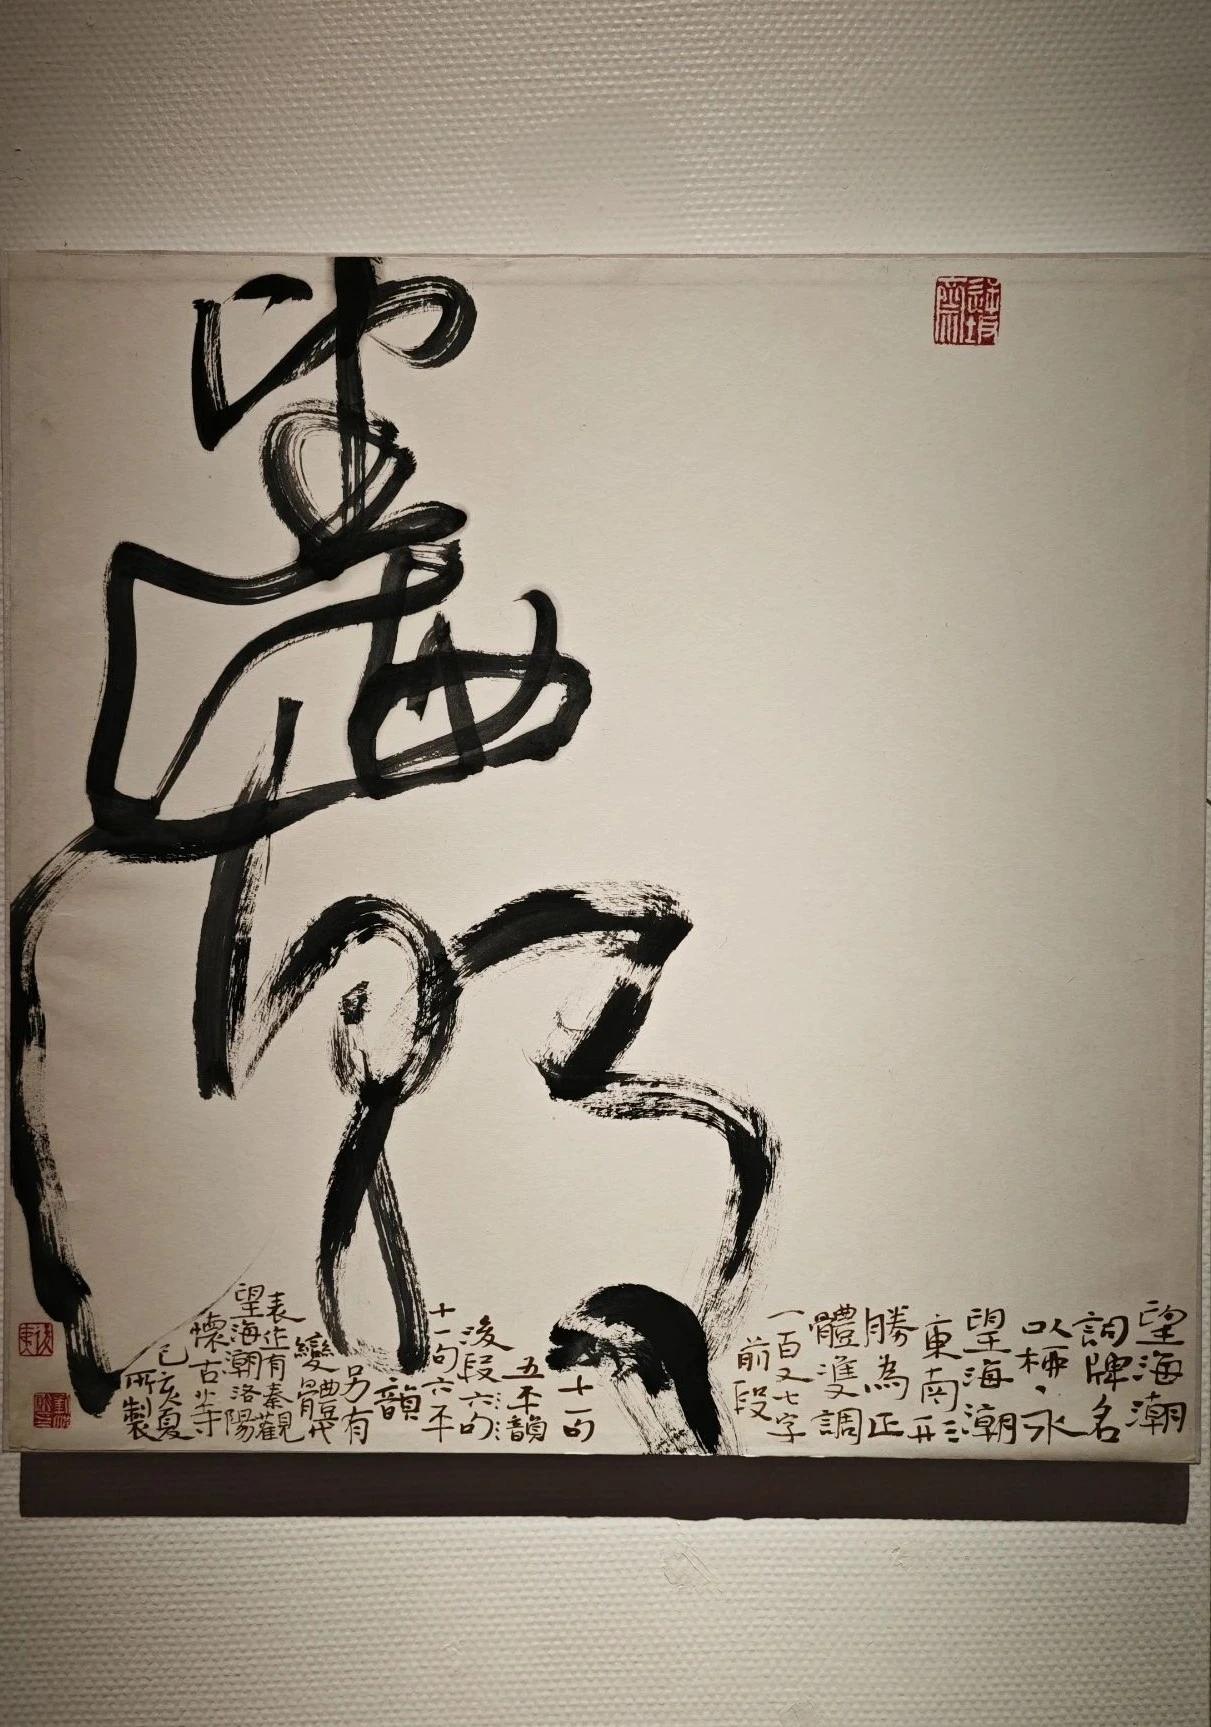 望海潮
望海潮
詞牌名
以柳永
望海潮
東南形
勝為正
體雙調
一百又七字
前段
十一句
五平韻
後段六句
十一句六平
韻
另有
變體代
表作有秦觀
望海潮洛陽
懷古等
己亥夏
所製